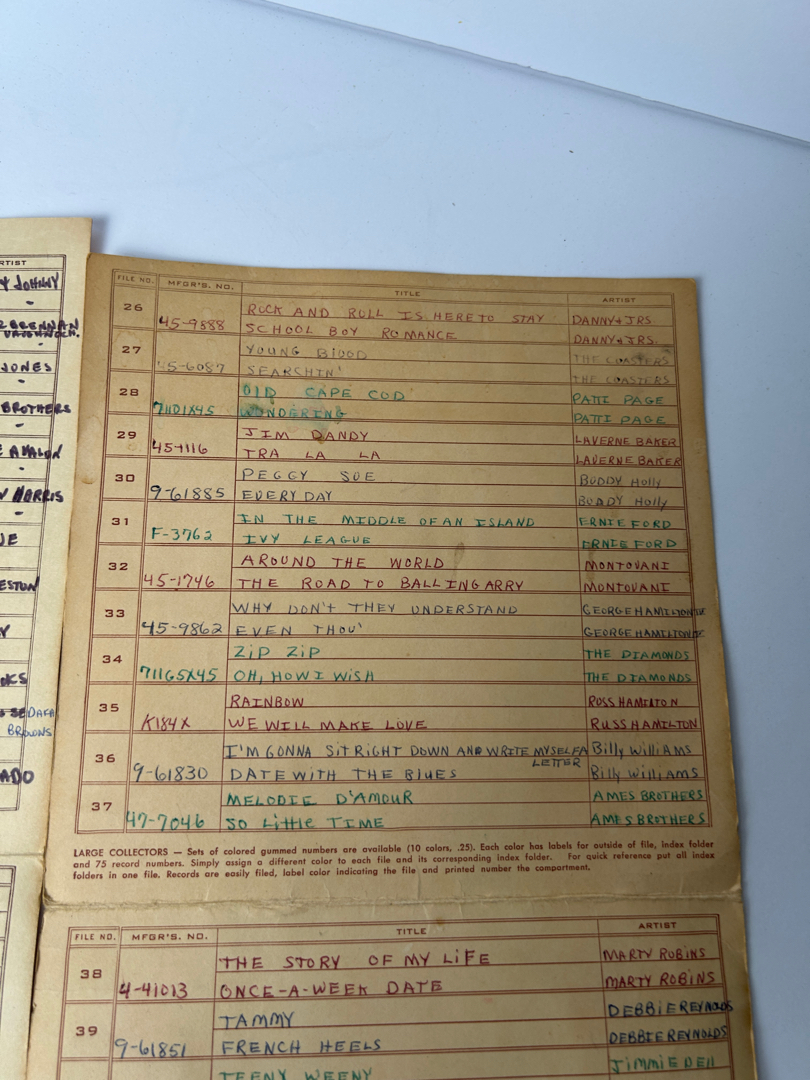 RTIST
Y JOHNNY
"
BRENNAN
VAUGHN ORCH.
"
JONES
BROTHERS
"
AVALON
HARRIS
"
UE
ESTON
Y
OKS
DAFA
BROWNS
ADO
FILE NO. MFGR'S. NO. TITLE ARTIST
26 ROCK AND ROLL IS HERE TO STAY DANNY + JRS.
45-9888 SCHOOL BOY ROMANCE DANNY + JRS.
27 YOUNG BLOOD THE COASTERS
45-6087 SEARCHIN' THE COASTERS
28 OLD CAPE COD PATTI PAGE
71101X45 WONDERING PATTI PAGE
29 JIM DANDY LAVERNE BAKER
45-1116 TRA LA LA LAVERNE BAKER
30 PEGGY SUE BUDDY Holly
9-61885 EVERY DAY BUDDY Holly
31 IN THE MIDDLE OF AN ISLAND ERNIE FORD
F-3762 IVY LEAGUE ERNIE FORD
32 AROUND THE WORLD MONTOVANI
45-1746 THE ROAD TO BALLINGARRY MONTOVANI
33 WHY DON'T THEY UNDERSTAND GEORGE HAMILTON IV
45-9862 EVEN THOU' GEORGE HAMILTON IV
34 ZIP ZIP THE DIAMONDS
71165X45 OH, HOW I WISH THE DIAMONDS
35 RAINBOW ROSS HAMILTON
K184X WE WILL MAKE LOVE RUSS HAMILTON
36 I'M GONNA SIT RIGHT DOWN AND WRITE MYSELF A LETTER Billy WilliAMS
9-61830 DATE WITH THE BLUES Billy WilliAMS
37 MELODIE D'AMOUR AMES BROTHERS
47-7046 SO LITTLE TIME AMES BROTHERS
LARGE COLLECTORS — Sets of colored gummed numbers are available (10 colors, .25). Each color has labels for outside of file, index folder
and 75 record numbers. Simply assign a different color to each file and its corresponding index folder. For quick reference put all index
folders in one file. Records are easily filed, label color indicating the file and printed number the compartment.
FILE NO. MFGR'S. NO. TITLE ARTIST
38 THE STORY OF MY LIFE MARTY ROBINS
4-41013 ONCE-A-WEEK DATE MARTY ROBINS
39 TAMMY DEBBIE REYNOLDS
9-61851 FRENCH HEELS DEBBIE REYNOLDS
TEENY WEENY JIMMIE DELL